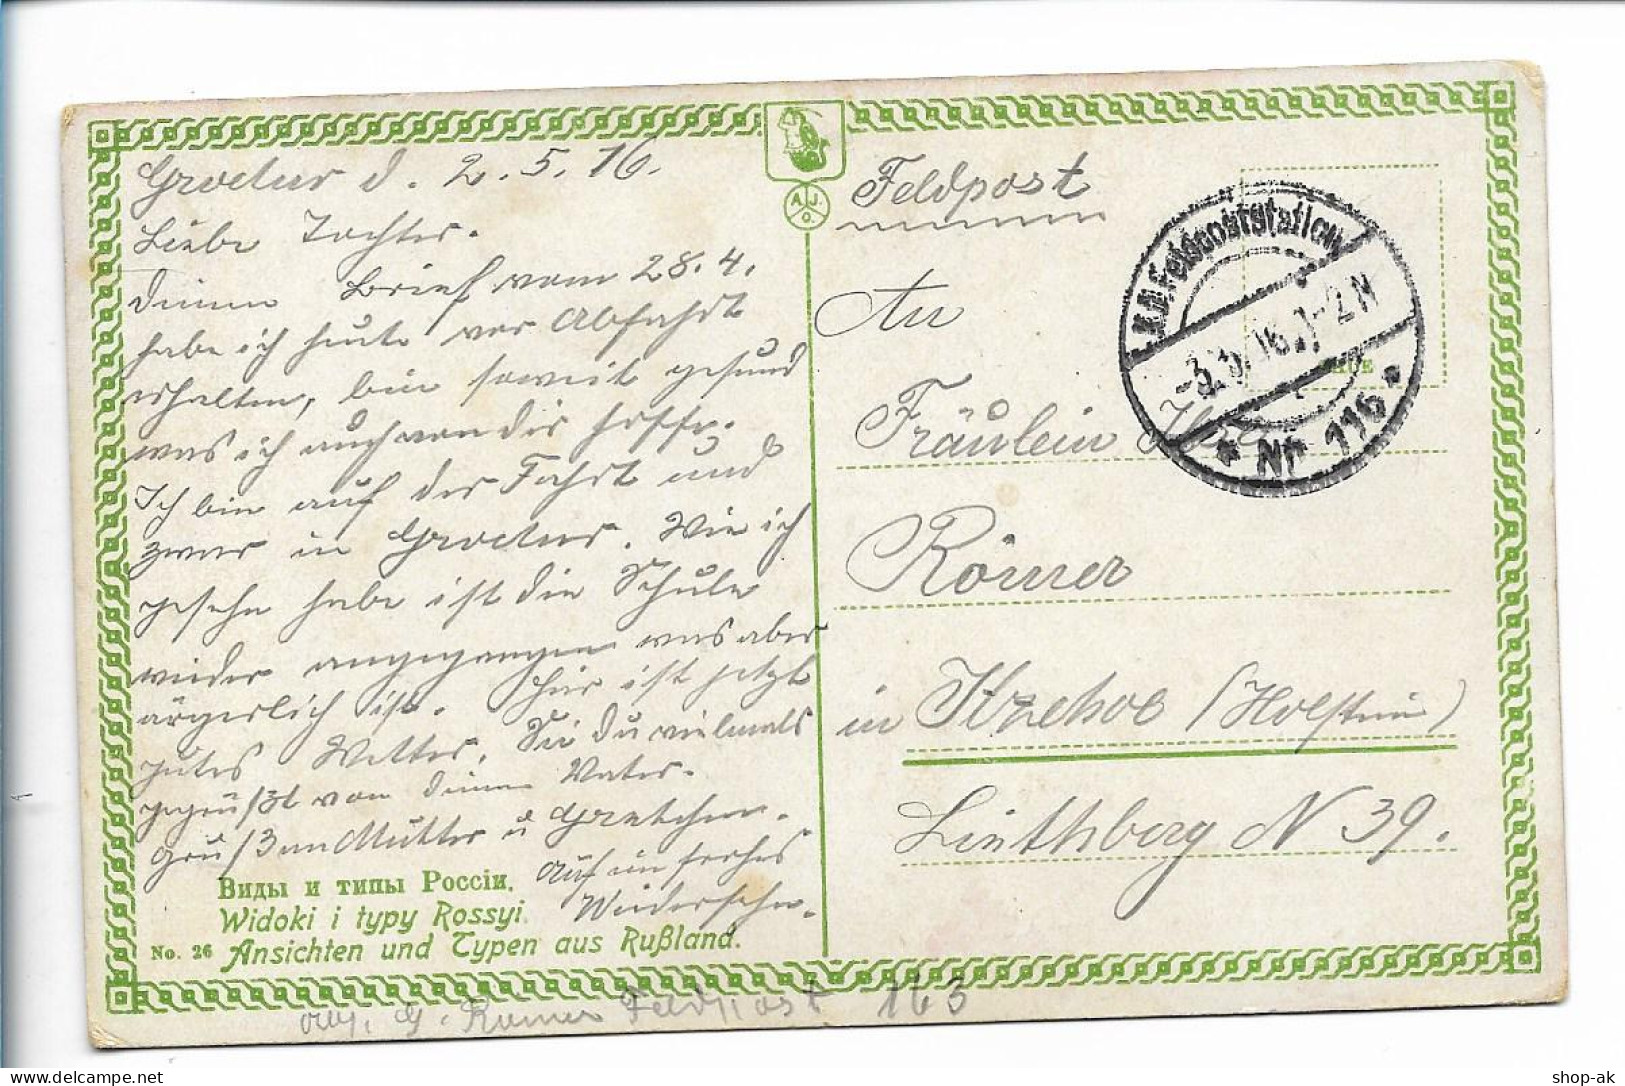 d. 2.5.16.
Liebe Tochter.
Deinen Brief vom 28.4.
habe ich heute vor Abfahrt
erhalten, bin soweit gesund
was ich auch von Dir hoffe.
Ich bin auf der Fahrt und
zwar in Wie ich
gesehn habe ist die Schule
wieder angegangen was aber
ärgerlich ist. Hier ist jetzt
gutes Wetter. Sei Du vielmals
gegrüßt von Deinem Vater.
Gruß an Mutter u Gretchen.
Auf ein frohes
Wiedersehn.
Виды и типы Россiи.
Widoki i typy Rossyi.
No. 26 Ansichten und Typen aus Rußland.
A. J. O.
Feldpost
An
Fräulein
Römer
in Itzehoe (Holstein)
N 39.
K.D. Feldpoststation
16. 1-2 N
* Nr 116 *
G. Römer Feldpost 163
shop-ak